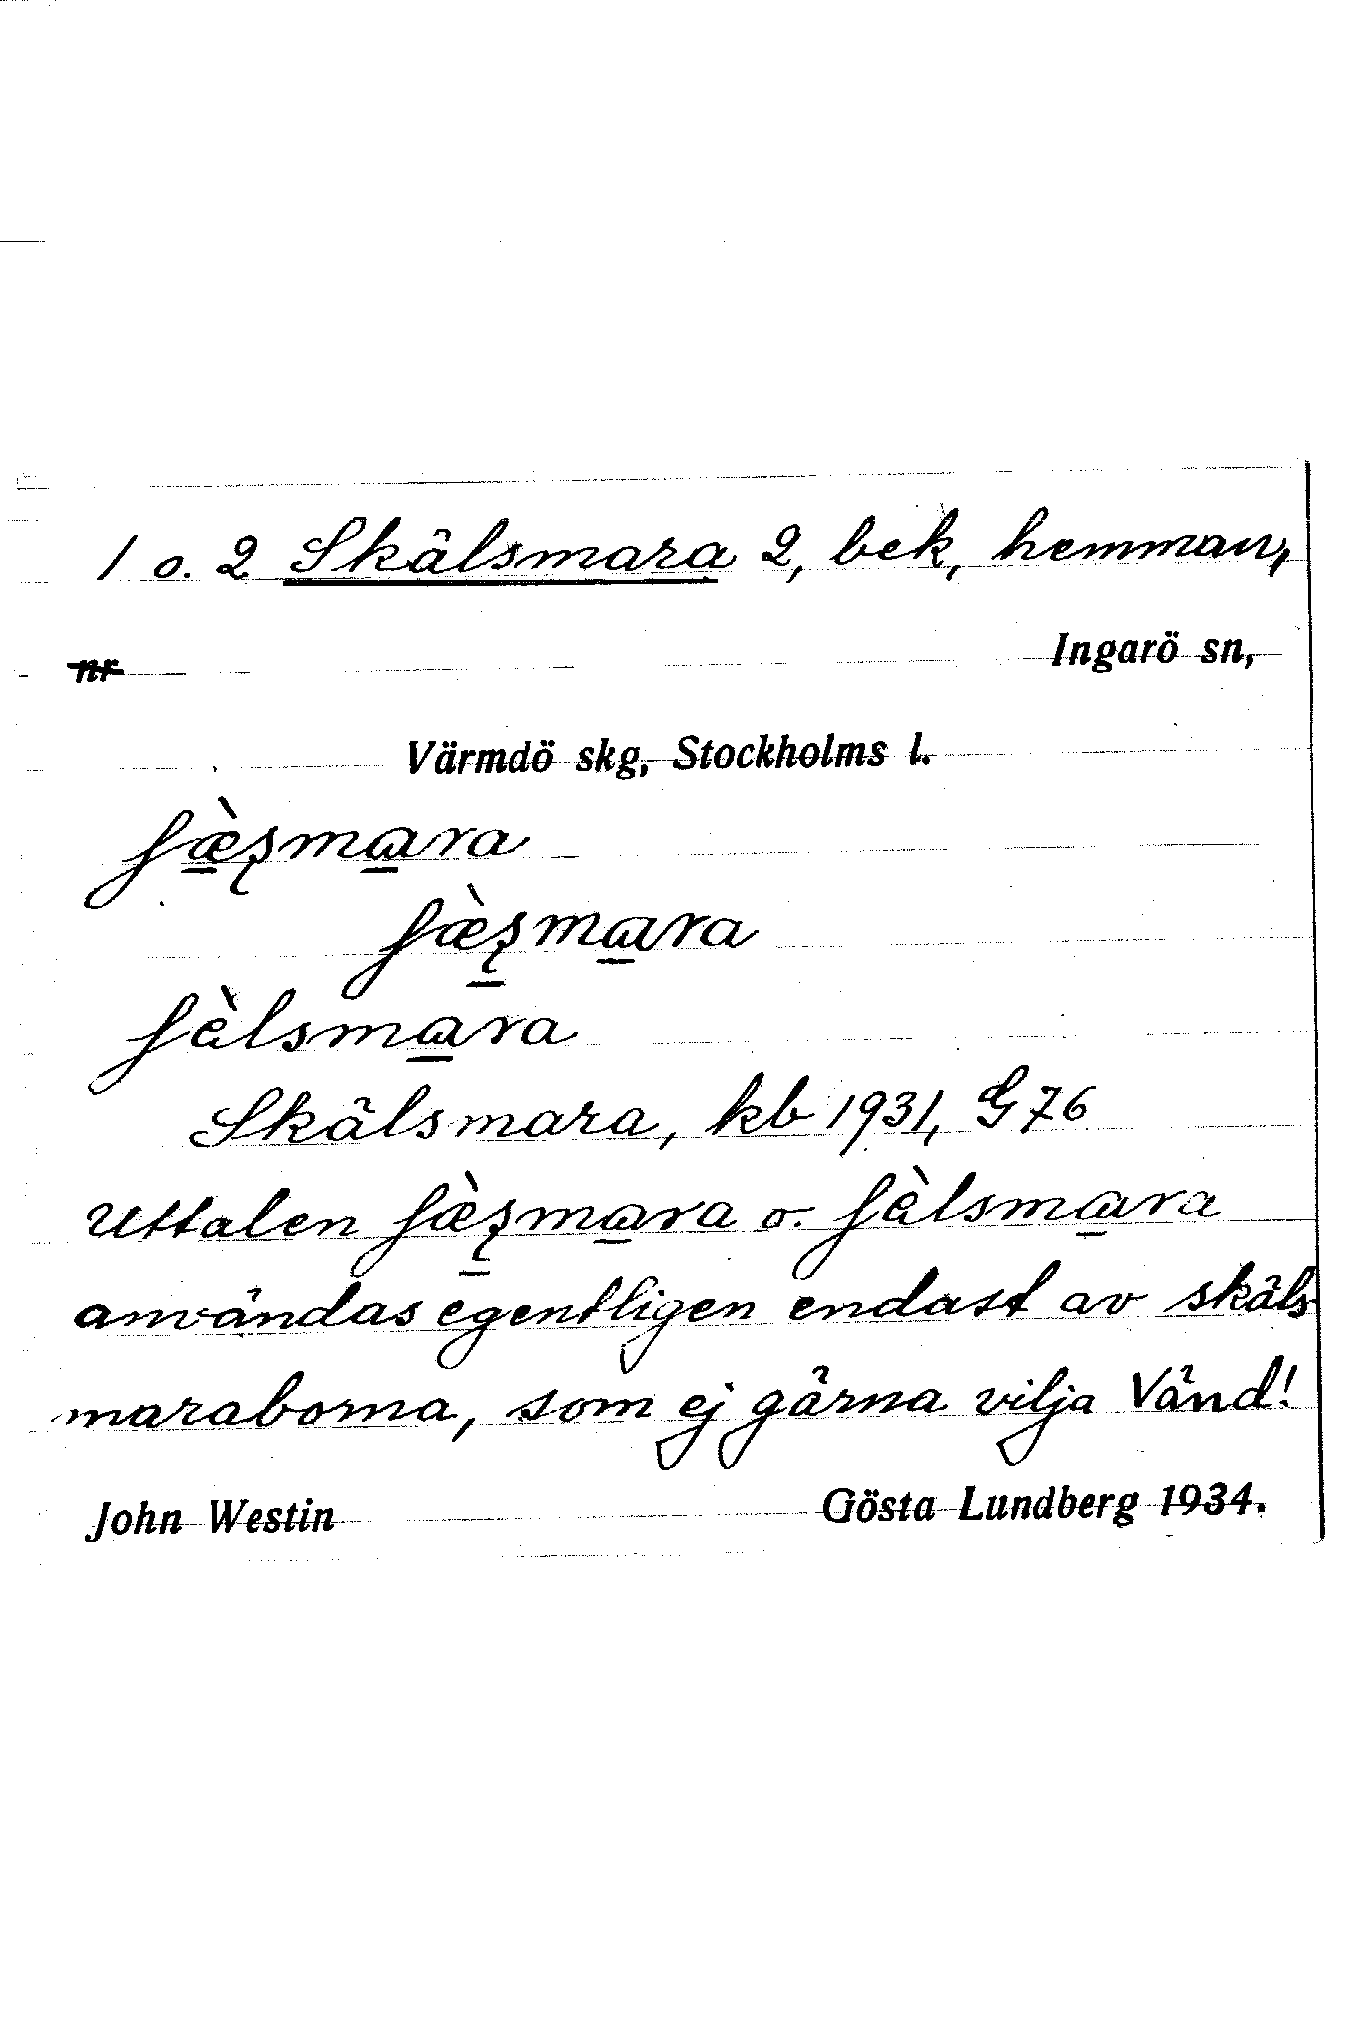 1 o. 2 Skälsmara 2, bek, hemman,
nr Ingarö sn,
Värmdö skg, Stockholms l.
ʃæ̀ʂmɑra
ʃæ̀ʂmɑra
ʃèlsmɑra
Skälsmara, kb 1931, G 76
Uttalen ʃæ̀ʂmɑra o. ʃèlsmɑra
användas egentligen endast av skäls-
maraborna, som ej gärna vilja Vänd!
John Westin Gösta Lundberg 1934.